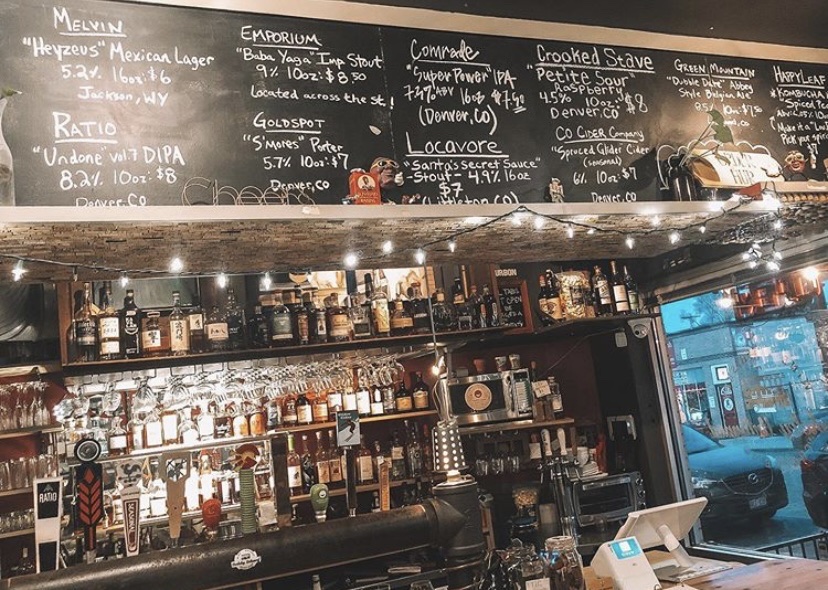 MELVIN
"Heyzeus" Mexican Lager
5.2% 16oz: $6
Jackson, WY
RATIO
"Undone" vol.7 DIPA
8.2% 10oz: $8
Denver, CO
EMPORIUM
"Baba Yaga" Imp Stout
9% 10oz: $8.50
Located across the st.!
GOLDSPOT
"S'mores" Porter
5.7% 10oz: $7
Denver, CO
Cheers
Comrade
"Super Power" IPA
16oz
(Denver, CO)
LOCAVORE
"Santa's Secret Sauce"
-Stout- 4.9% 16oz
$7
(Littleton, CO)
Crooked Stave
"Petite Sour"
Raspberry
4.5% 10oz: $8
Denver, CO
CO CIDER COMPANY
"Spruced Glider Cider"
(seasonal)
6% 10oz: $7
Denver, CO
GREEN MOUNTAIN
Abbey
Style Belgian Ale
10oz: $7.50
Denver, CO
HAPPYLEAF
KOMBUCHA
Spiced
Make it a
Pick your
URBON
RATIO